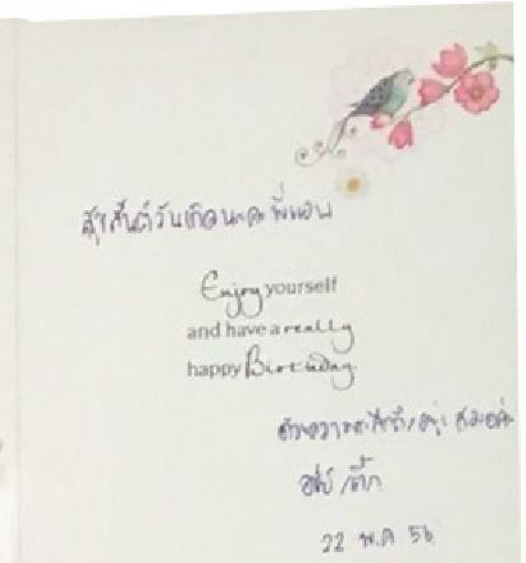 สุขสันต์วันเกิดนะคะ พี่แอน
Enjoy yourself
and have a really
happy Birthday
ด้วยความระลึกถึงอยู่เสมอค่ะ
22 พ.ค 56